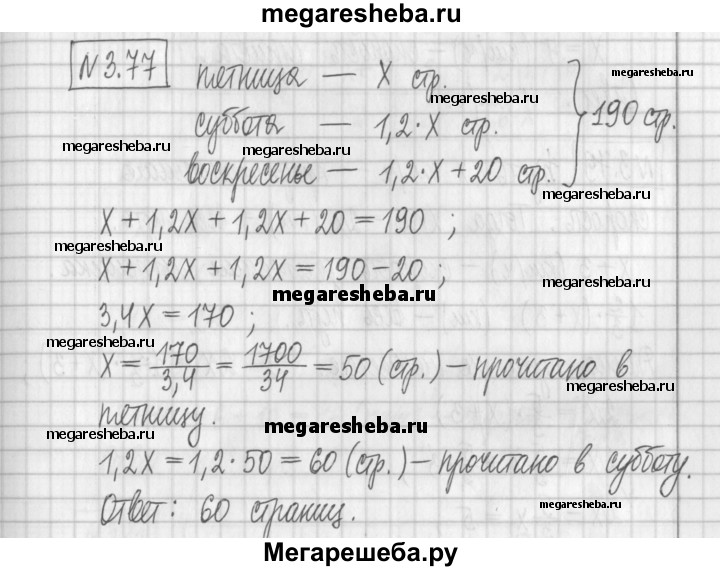 megaresheba.ru
N 3.77 петница — X стр.
megaresheba.ru
megaresheba.ru
суббота — 1,2·X стр. } 190 стр.
megaresheba.ru
megaresheba.ru
megaresheba.ru
воскресенье — 1,2·X + 20 стр.
megaresheba.ru
X + 1,2X + 1,2X + 20 = 190 ;
megaresheba.ru
X + 1,2X + 1,2X = 190 - 20 ;
megaresheba.ru
3,4X = 170 ;
megaresheba.ru
X = 170/3,4 = 1700/34 = 50 (стр.) – прочитано в
megaresheba.ru
петницу.
megaresheba.ru
megaresheba.ru
1,2X = 1,2·50 = 60 (стр.) – прочитано в субботу.
Ответ: 60 страниц.
megaresheba.ru
Мегарешеба.ру